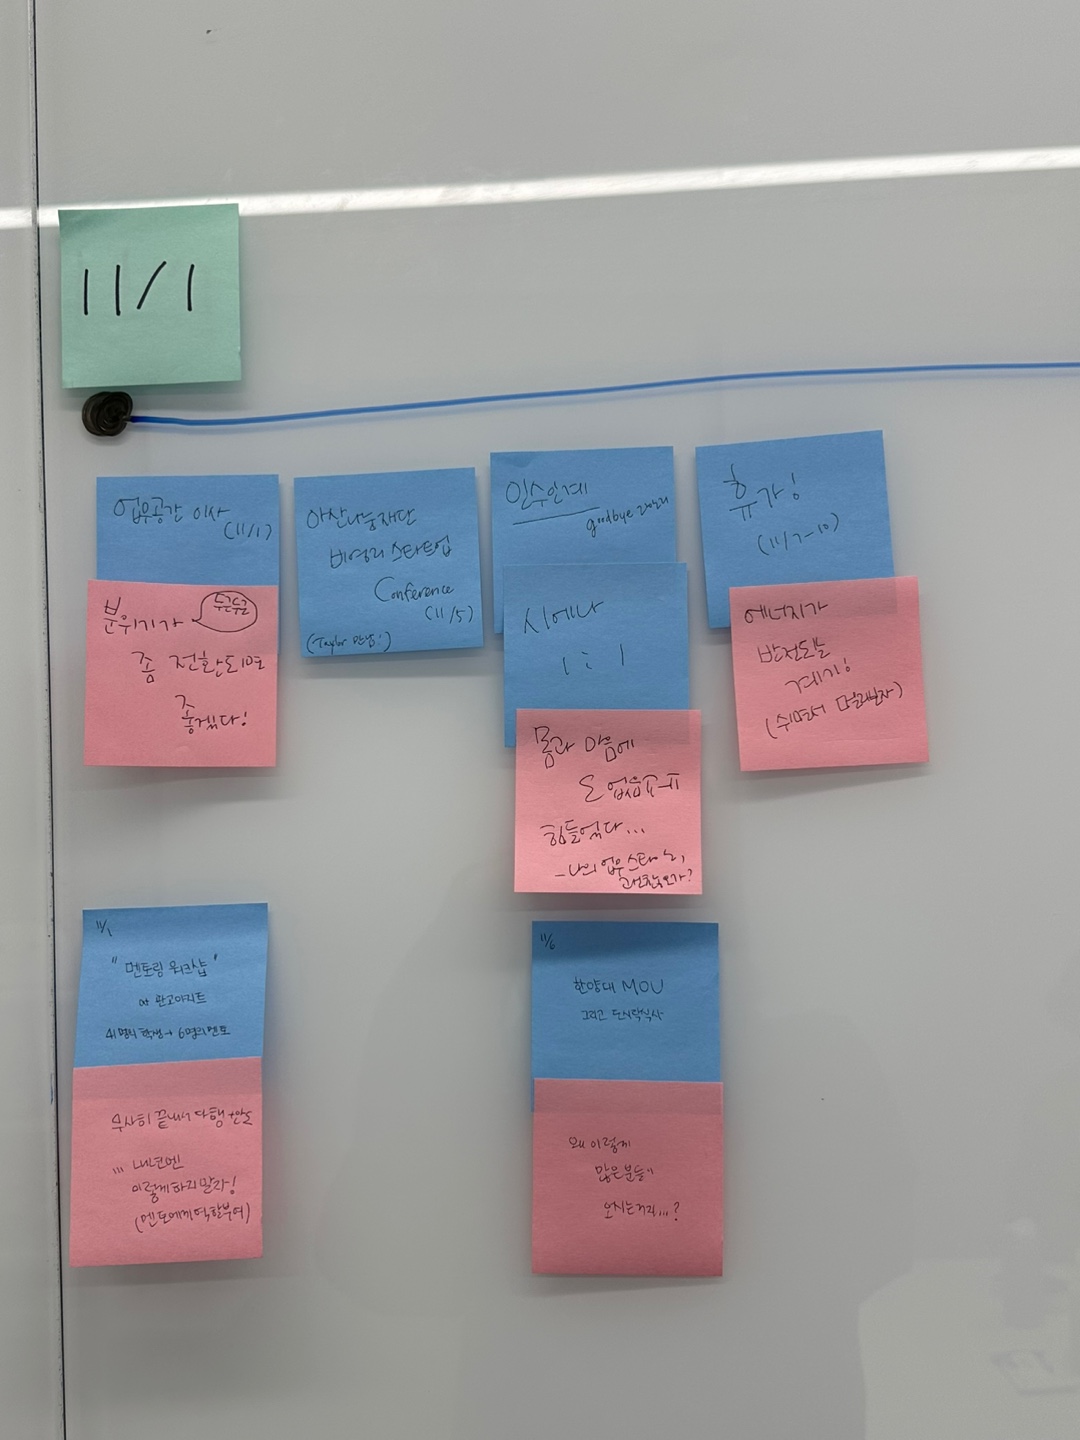 11/1
업무공간 이사
(11/1)
분위기가
두근두근
좀 전환되면
좋겠다!
아산나눔재단
비영리 스타트업
Conference
(11/5)
(Taylor 만남!)
인수인계
goodbye
시에나
1:1
몸과 마음에
힘들었다...
- 나의 업무스타일,
괜찮은가?
휴가!
(11/7-10)
에너지가
반전되는
계기!
(쉬면서 멀리보자)
11/1
"멘토링 워크샵"
at 광고아지트
41명의 학생 → 6명의 멘토
무사히 끝나서 다행
... 내년엔
이렇게 하지 말라!
(멘토에게 역할부여)
11/6
한양대 MOU
그리고 도시락식사
왜 이렇게
많은 분들이
오시는거지...?